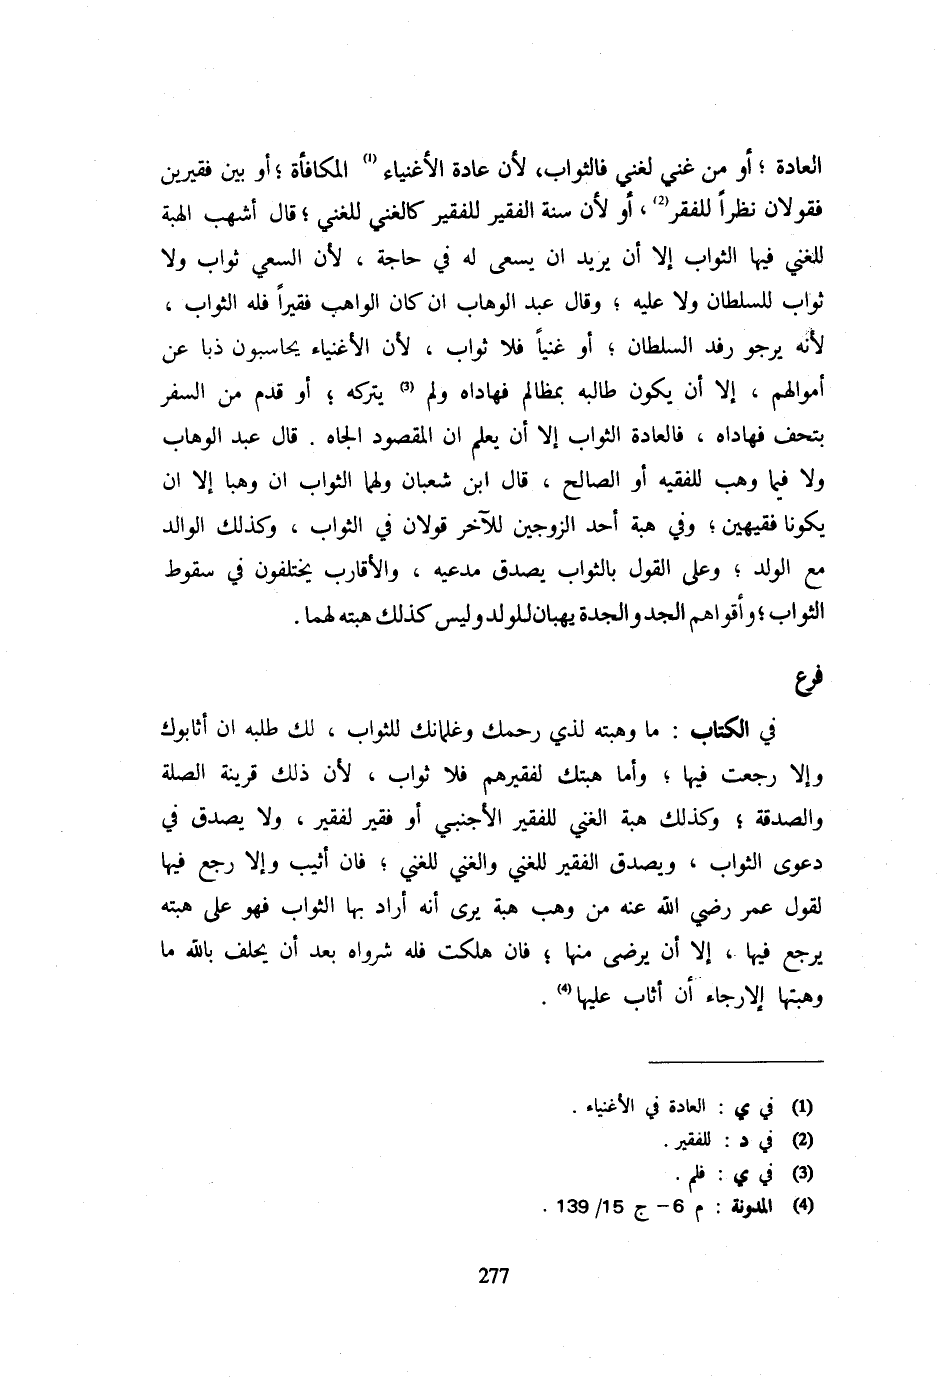 العادة ؛ أو من غني لغني فالثواب، لأن عادة الأغنياء (1) المكافأة ؛ أو بين فقيرين
فقولان نظراً للفقر(2) ، أو لأن سنة الفقير للفقير كالغني للغني ؛ قال أشهب الهبة
للغني فيها الثواب إلا أن يريد ان يسعى له في حاجة ، لأن السعي ثواب ولا
ثواب للسلطان ولا عليه ؛ وقال عبد الوهاب ان كان الواهب فقيراً فله الثواب ،
لأنه يرجو رفد السلطان ؛ أو غنياً فلا ثواب ، لأن الأغنياء يحاسبون ذبا عن
أموالهم ، إلا أن يكون طالبه بمظالم فهاداه ولم (3) يتركه ؛ أو قدم من السفر
بتحف فهاداه ، فالعادة الثواب إلا أن يعلم ان المقصود الجاه . قال عبد الوهاب
ولا فيما وهب للفقيه أو الصالح ، قال ابن شعبان ولهما الثواب ان وهبا إلا ان
يكونا فقيهين ؛ وفي هبة أحد الزوجين للآخر قولان في الثواب ، وكذلك الوالد
مع الولد ؛ وعلى القول بالثواب يصدق مدعيه ، والأقارب يختلفون في سقوط
الثواب ؛ وأقواهم الجد والجدة يهبان للولد وليس كذلك هبته لهما .
فرع
في الكتاب : ما وهبته لذي رحمك وغلمانك للثواب ، لك طلبه ان أثابوك
وإلا رجعت فيها ؛ وأما هبتك لفقيرهم فلا ثواب ، لأن ذلك قرينة الصلة
والصدقة ؛ وكذلك هبة الغني للفقير الأجنبي أو فقير لفقير ، ولا يصدق في
دعوى الثواب ، ويصدق الفقير للغني والغني للغني ؛ فان أثيب وإلا رجع فيها
لقول عمر رضي الله عنه من وهب هبة يرى أنه أراد بها الثواب فهو على هبته
يرجع فيها ، إلا أن يرضى منها ؛ فان هلكت فله شرواه بعد أن يحلف بالله ما
وهبتها إلارجاء أن أثاب عليها(4) .
(1) في ي : العادة في الأغنياء .
(2) في د : للفقير .
(3) في ي : فلم .
(4) المدونة : م 6 – ج 15/ 139 .
277